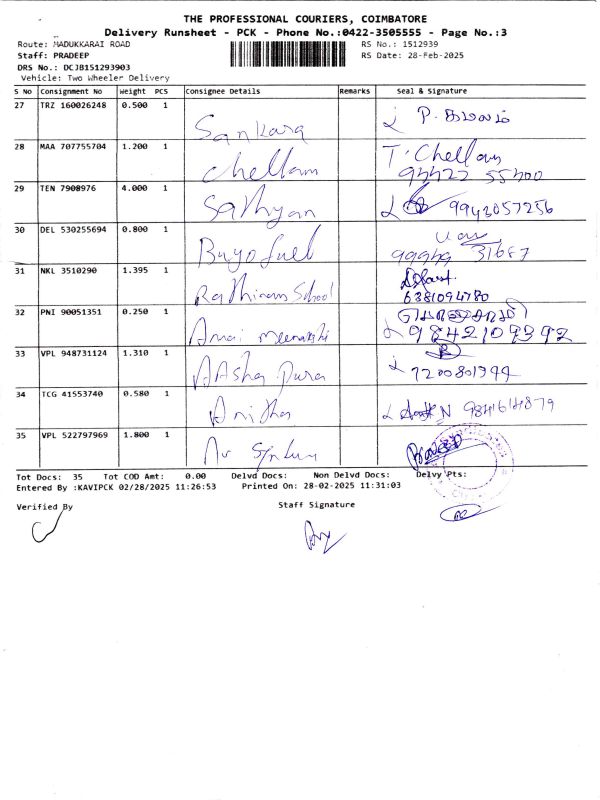 THE PROFESSIONAL COURIERS, COIMBATORE
Delivery Runsheet - PCK - Phone No.:0422-3505555 - Page No.:3
Route: MADUKKARAI ROAD RS No.: 1512939
Staff: PRADEEP RS Date: 28-Feb-2025
DRS No.: DCJB151293903
Vehicle: Two Wheeler Delivery
S No Consignment No Weight PCS Consignee Details Remarks Seal & Signature
27 TRZ 160026248 0.500 1 Sankara P.
28 MAA 707755704 1.200 1 Chellam T. Chellam
94422 55400
29 TEN 7908976 4.000 1 Sathyan 9943057256
30 DEL 530255694 0.800 1 Buyofuel
99949 31687
31 NKL 3510290 1.395 1 Rathinam School
6381094780
32 PNI 90051351 0.250 1 Annai Meenakshi
9842109392
33 VPL 948731124 1.310 1 AAsha Pura
7200801944
34 TCG 41553740 0.580 1 Anitha N 9841614879
35 VPL 522797969 1.800 1
Tot Docs: 35 Tot COD Amt: 0.00 Delvd Docs: Non Delvd Docs: Delvy Pts:
Entered By :KAVIPCK 02/28/2025 11:26:53 Printed On: 28-02-2025 11:31:03
Verified By Staff Signature